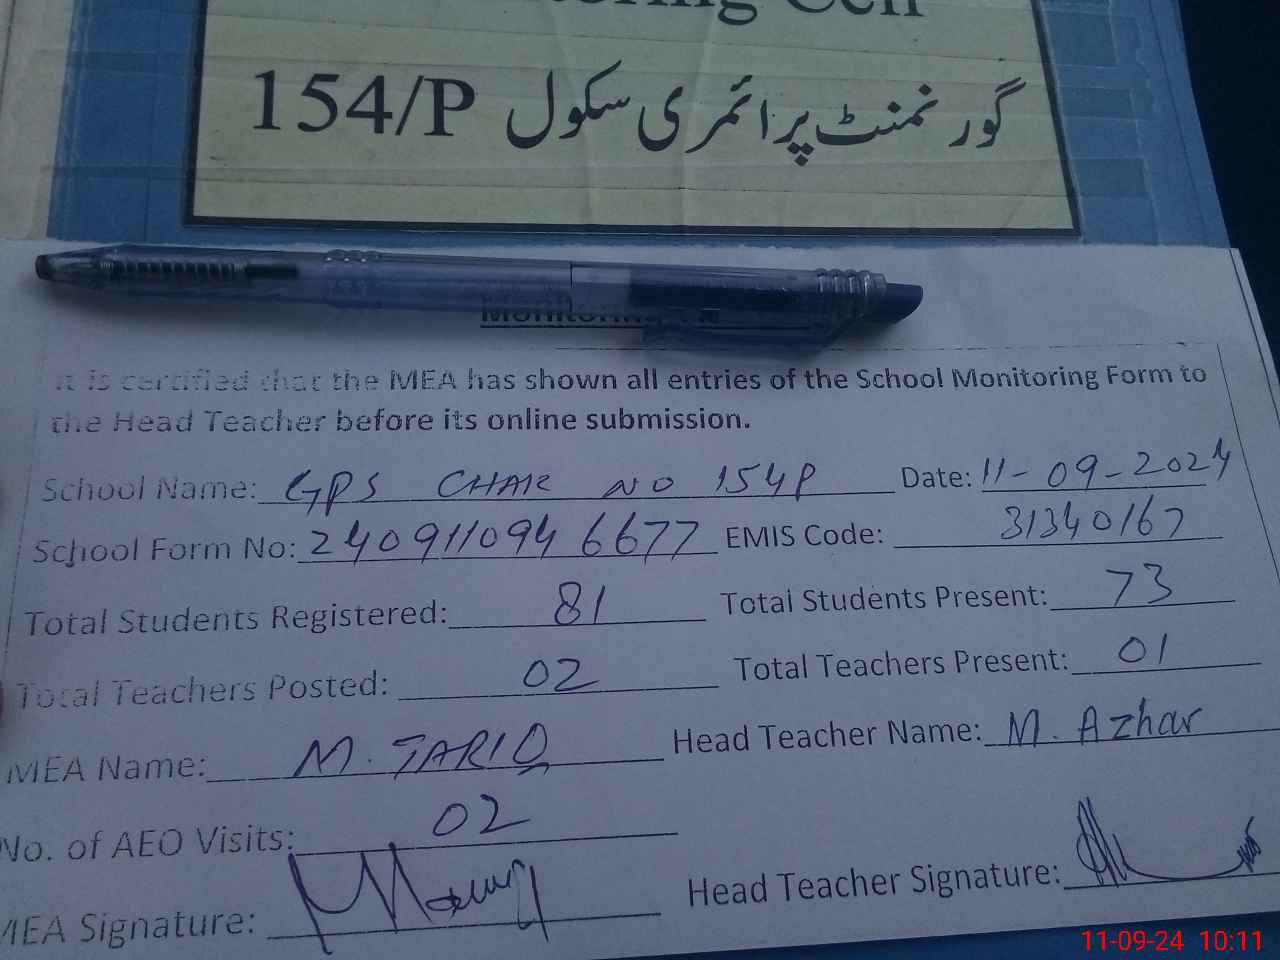 154/P گورنمنٹ پرائمری سکول
It is certified that the MEA has shown all entries of the School Monitoring Form to
the Head Teacher before its online submission.
School Name: GPS CHAK NO 154P Date: 11-09-2024
School Form No: 2409110946677 EMIS Code: 31340167
Total Students Registered: 81 Total Students Present: 73
Total Teachers Posted: 02 Total Teachers Present: 01
MEA Name: M. TARIQ Head Teacher Name: M. Azhar
No. of AEO Visits: 02
MEA Signature: Head Teacher Signature:
11-09-24 10:11